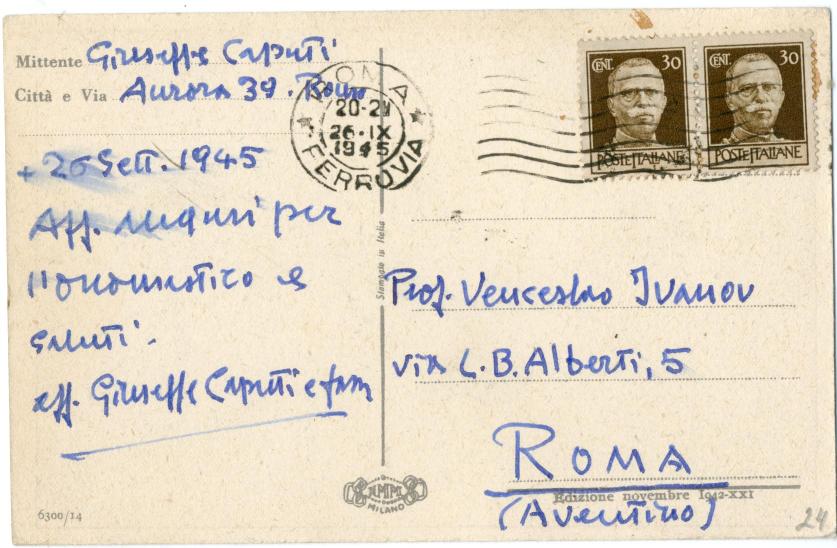 Mittente Giuseppe Caputi
Città e Via Aurora 39. Roma
+ 26 Sett. 1945
Aff. auguri per
l'onomastico e
saluti.
aff. Giuseppe Caputi e fam
ROMA
20-21
26·IX
1945
FERROVIA
CENT. 30
POSTE ITALIANE
CENT. 30
POSTE ITALIANE
Stampato in Italia
Prof. Venceslao Ivanov
via L.B. Alberti, 5
ROMA
Edizione novembre 1942-XXI
(Aventino)
MILANO
6300/14
24